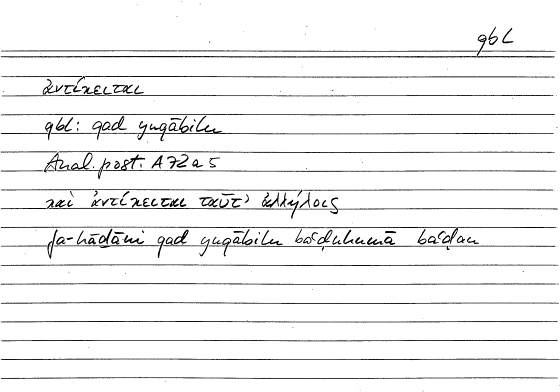 qbl
ἀντίκειται
qbl: qad yuqābilu
Anal. post. A 72 a 5
καὶ ἀντίκειται ταῦτ' ἀλλήλοις
fa-hāḏāni qad yuqābilu baʿḍuhumā baʿḍan